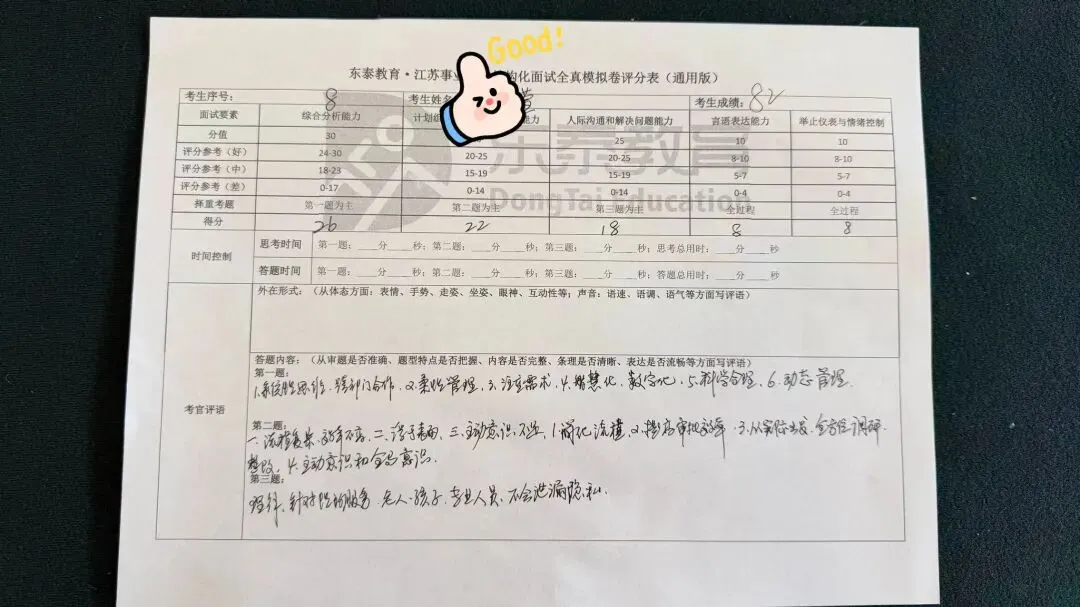 Good!
东泰教育·江苏事业 构化面试全真模拟卷评分表（通用版）
考生序号： 8 考生姓名 考生成绩： 82
面试要素 综合分析能力 计划组 能力 人际沟通和解决问题能力 言语表达能力 举止仪表与情绪控制
分值 30 25 10 10
评分参考（好） 24-30 20-25 20-25 8-10 8-10
评分参考（中） 18-23 15-19 15-19 5-7 5-7
评分参考（差） 0-17 0-14 0-14 0-4 0-4
择重考题 第一题为主 第二题为主 第三题为主 全过程 全过程
得分 26 22 18 8 8
东泰教育
DongTai Education
时间控制
思考时间 第一题：____分____秒；第二题：____分____秒；第三题：____分____秒；思考总用时：____分____秒
答题时间 第一题：____分____秒；第二题：____分____秒；第三题：____分____秒；答题总用时：____分____秒
考官评语
外在形式：（从体态方面：表情、手势、走姿、坐姿、眼神、互动性等；声音：语速、语调、语气等方面写评语）
答题内容：（从审题是否准确、题型特点是否把握、内容是否完整、条理是否清晰、表达是否流畅等方面写评语）
第一题：
1.系统性思维、跨部门合作、2.柔性管理、3.注重需求、4.智慧化、数字化、5.科学合理、6.动态管理.
第二题：
一、流程复杂、效率不高、二、 三、主动意识不足、1.简化流程、2.提高审批效率、3.从实际出发、全方位调研
整改、4.主动意识和 意识.
第三题：
理解、针对性的服务、老人、孩子、专业人员、不会泄漏隐私.